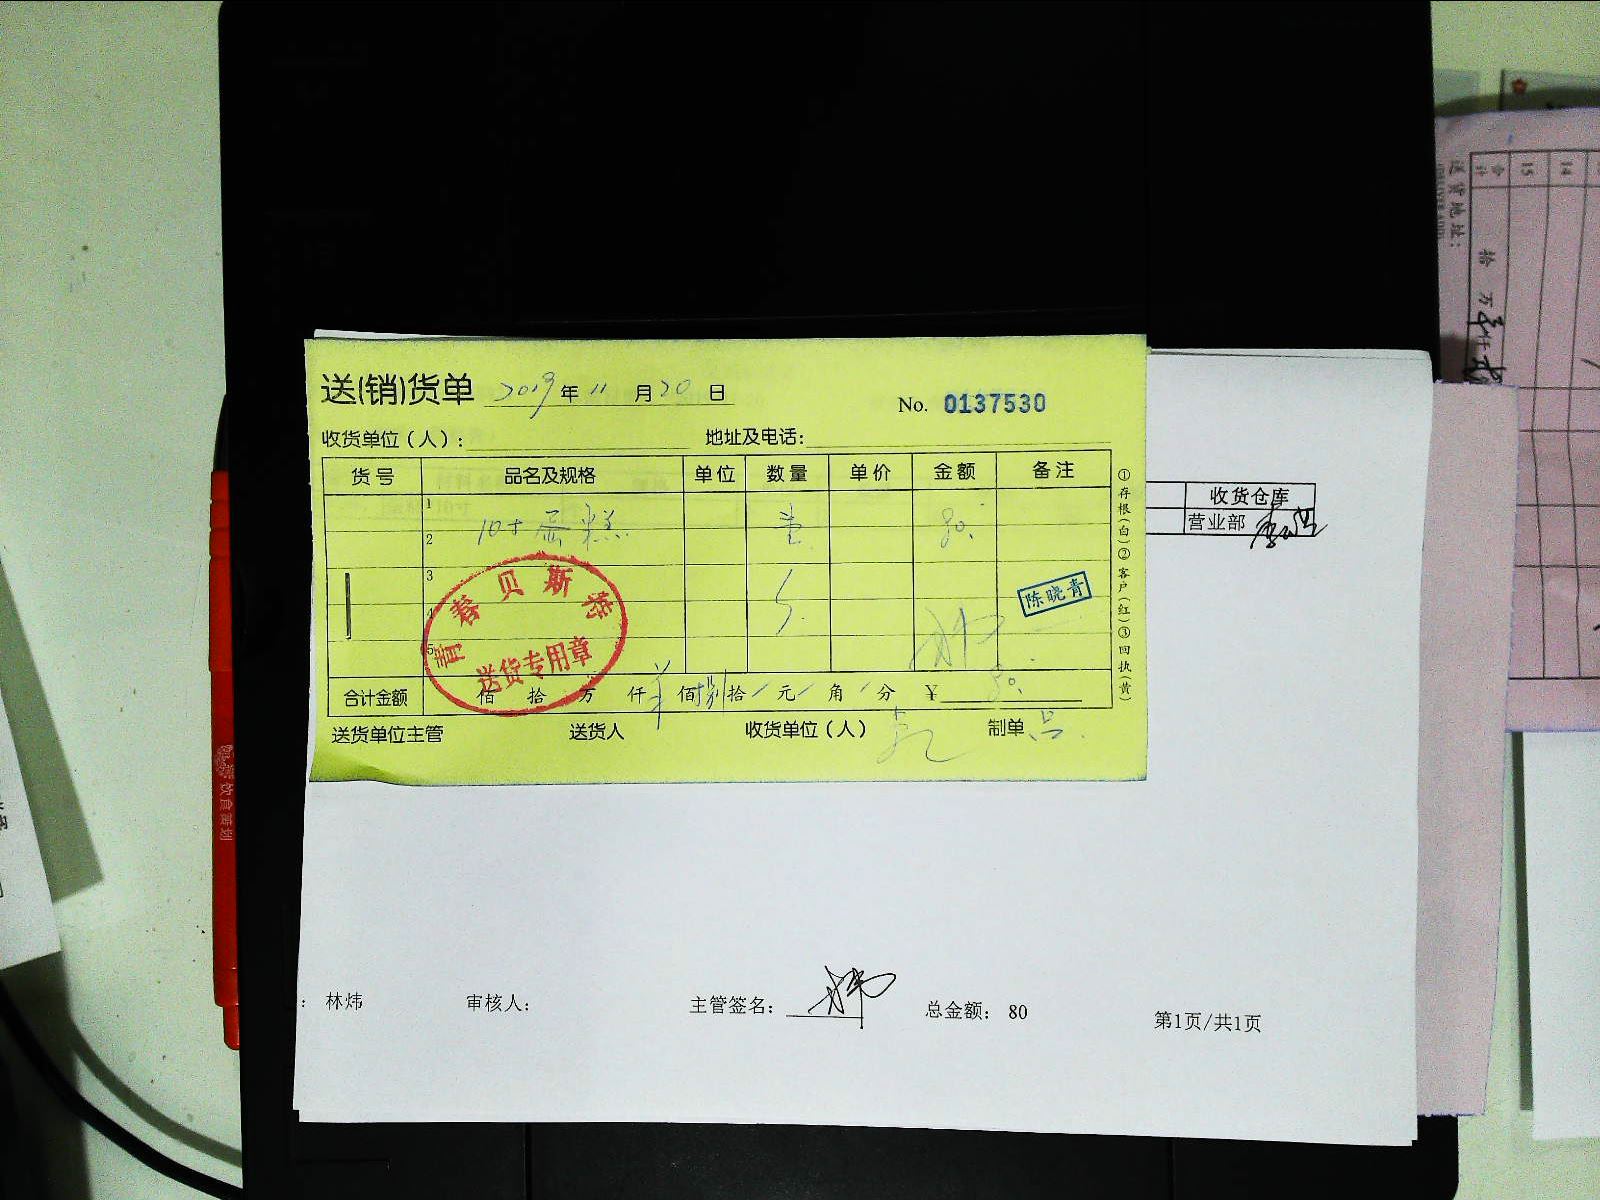 送(销)货单 2019年11月20日
No. 0137530
收货单位（人）: 地址及电话:
货号 品名及规格 单位 数量 单价 金额 备注
1 10寸蛋糕 壹 80.
2
3
4
5
陈晓青
青春贝斯特
送货专用章
合计金额 佰 拾 万 仟 佰 捌拾 元 角 分 ￥ 80.
送货单位主管 送货人 收货单位（人） 制单
①存根（白）②客户（红）③回执（黄）
收货仓库
营业部
: 林炜 审核人: 主管签名: 总金额: 80 第1页/共1页
饮食策划
送货地址:
合计 拾 万 仟
15
14